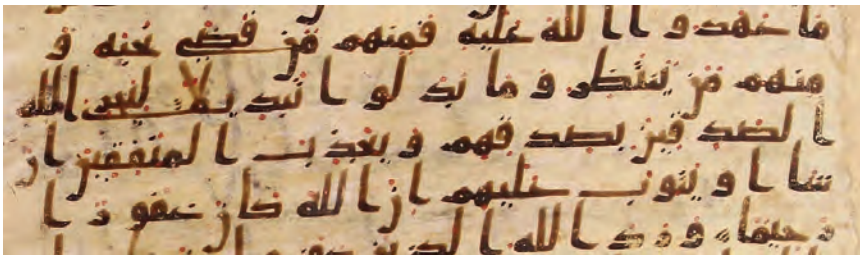 ما عهدوا الله عليه فمنهم من قضى نحبه و
منهم من ينتظر و ما بدلوا تبديلا ليجزى الله
الصدقين بصدقهم و يعذب المنفقين ان
شا او يتوب عليهم ان الله كان غفورا
رحيما و رد الله الذين كفروا